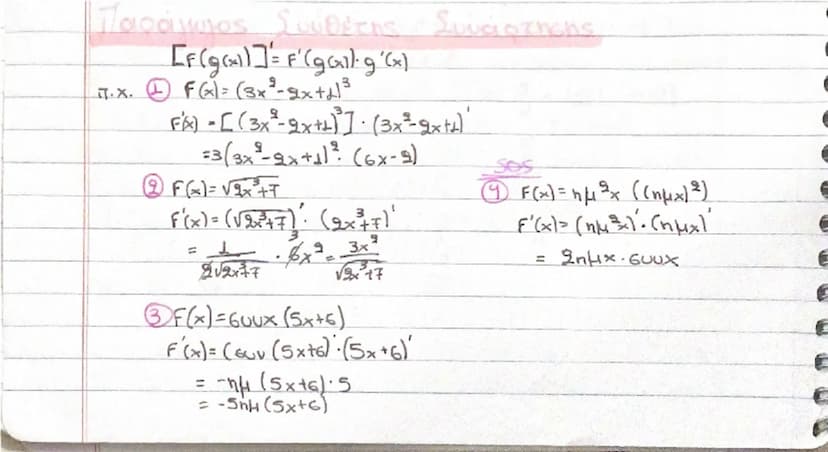 Παράγωγος Σύνθετης Συνάρτησης
[F(g(x))]' = F'(g(x))·g'(x)
π.χ. ① F(x) = (3x²-2x+1)³
F'(x) = [(3x²-2x+1)³]'·(3x²-2x+1)'
=3(3x²-2x+1)²·(6x-2)
② F(x)=√2x³+7
F'(x)=(√2x³+7)'·(2x³+7)'
= 1/2√2x³+7 · 6x² = 3x²/√2x³+7
③ F(x)=συνx(5x+6)
F'(x)=(συν(5x+6)'·(5x+6)'
= -ημ(5x+6)·5
= -5ημ(5x+6)
SOS
④ F(x)=ημ²x ((ημx)²)
F'(x)=(ημ²x)'·(ημx)'
= 2ημx·συνx